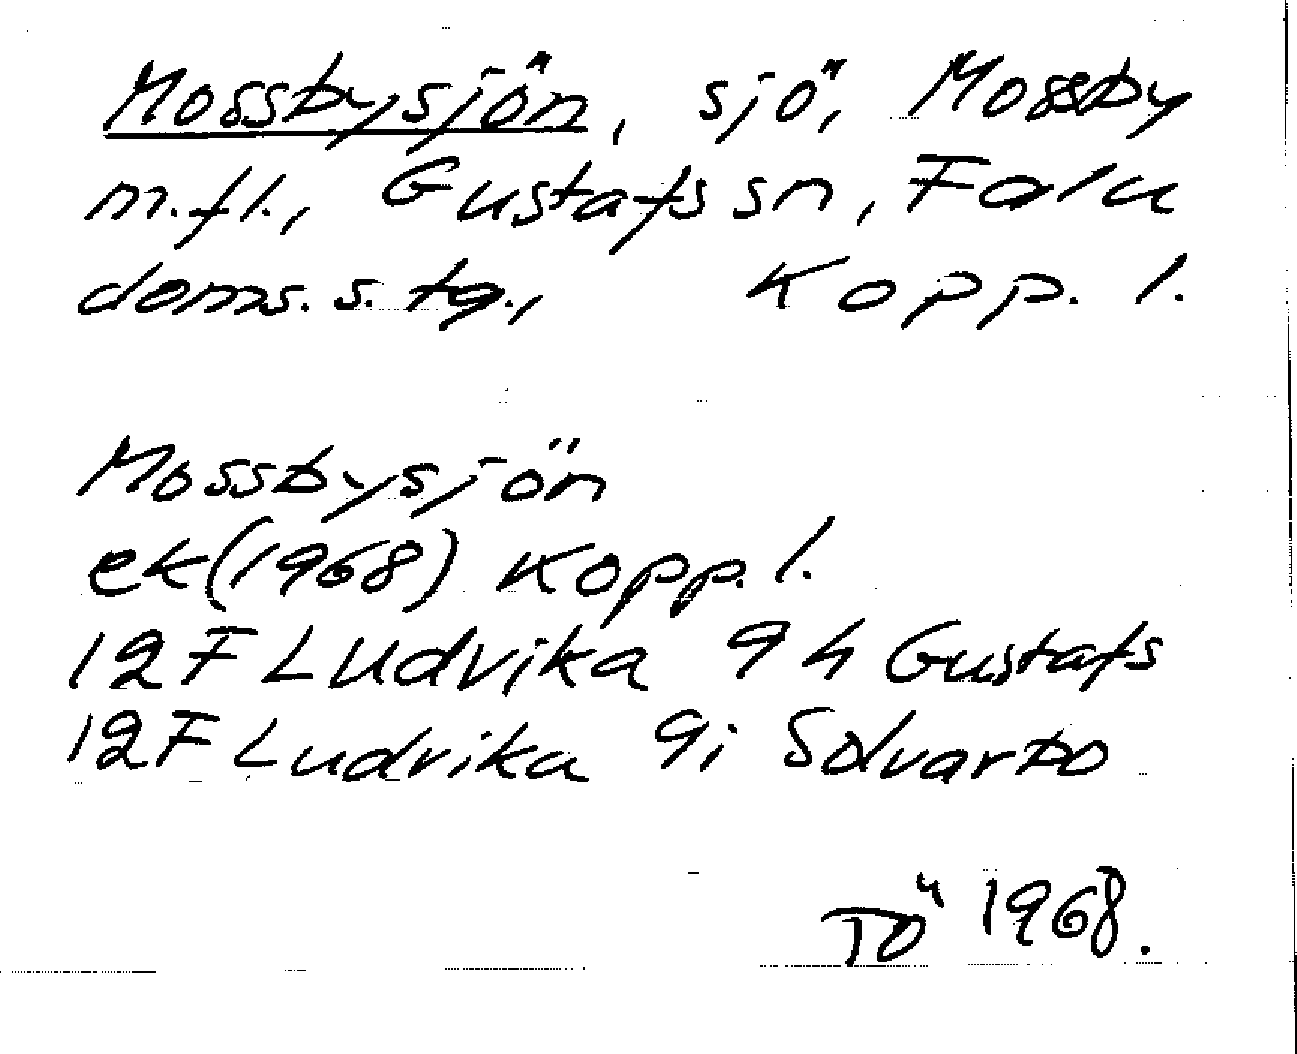 Mossbysjön, sjö, Mossby
m.fl., Gustafs sn, Falu
doms. s. tg., Kopp. l.
Mossbysjön
ek (1968) Kopp. l.
12F Ludvika 9h Gustafs
12F Ludvika 9i Solvarbo
TÖ 1968.